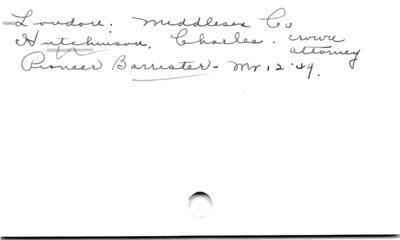 London. Middlesex Co
Hutchinson, Charles. crown attorney
Pioneer Barrister - Mr 12 '49.